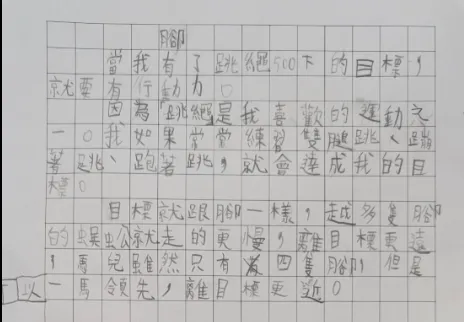 腳
當我有了跳繩500下的目標,
就要有行動力。
因為跳繩是我喜歡的運動之
一。我如果常常練習雙腿跳、蹦
著跳、跑著跳,就會達成我的目
標。
目標就跟腳一樣,越多隻腳
的蜈蚣就走的更慢,離目標更遠
,馬兒雖然只有四隻腳,但是
以一馬領先,離目標更近。